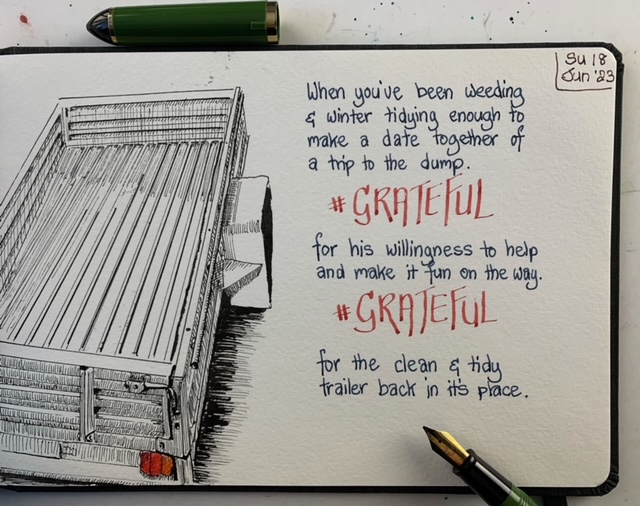 Su 18
Jun '23
When you've been weeding
& winter tidying enough to
make a date together of
a trip to the dump.
#GRATEFUL
for his willingness to help
and make it fun on the way.
#GRATEFUL
for the clean & tidy
trailer back in it's place.